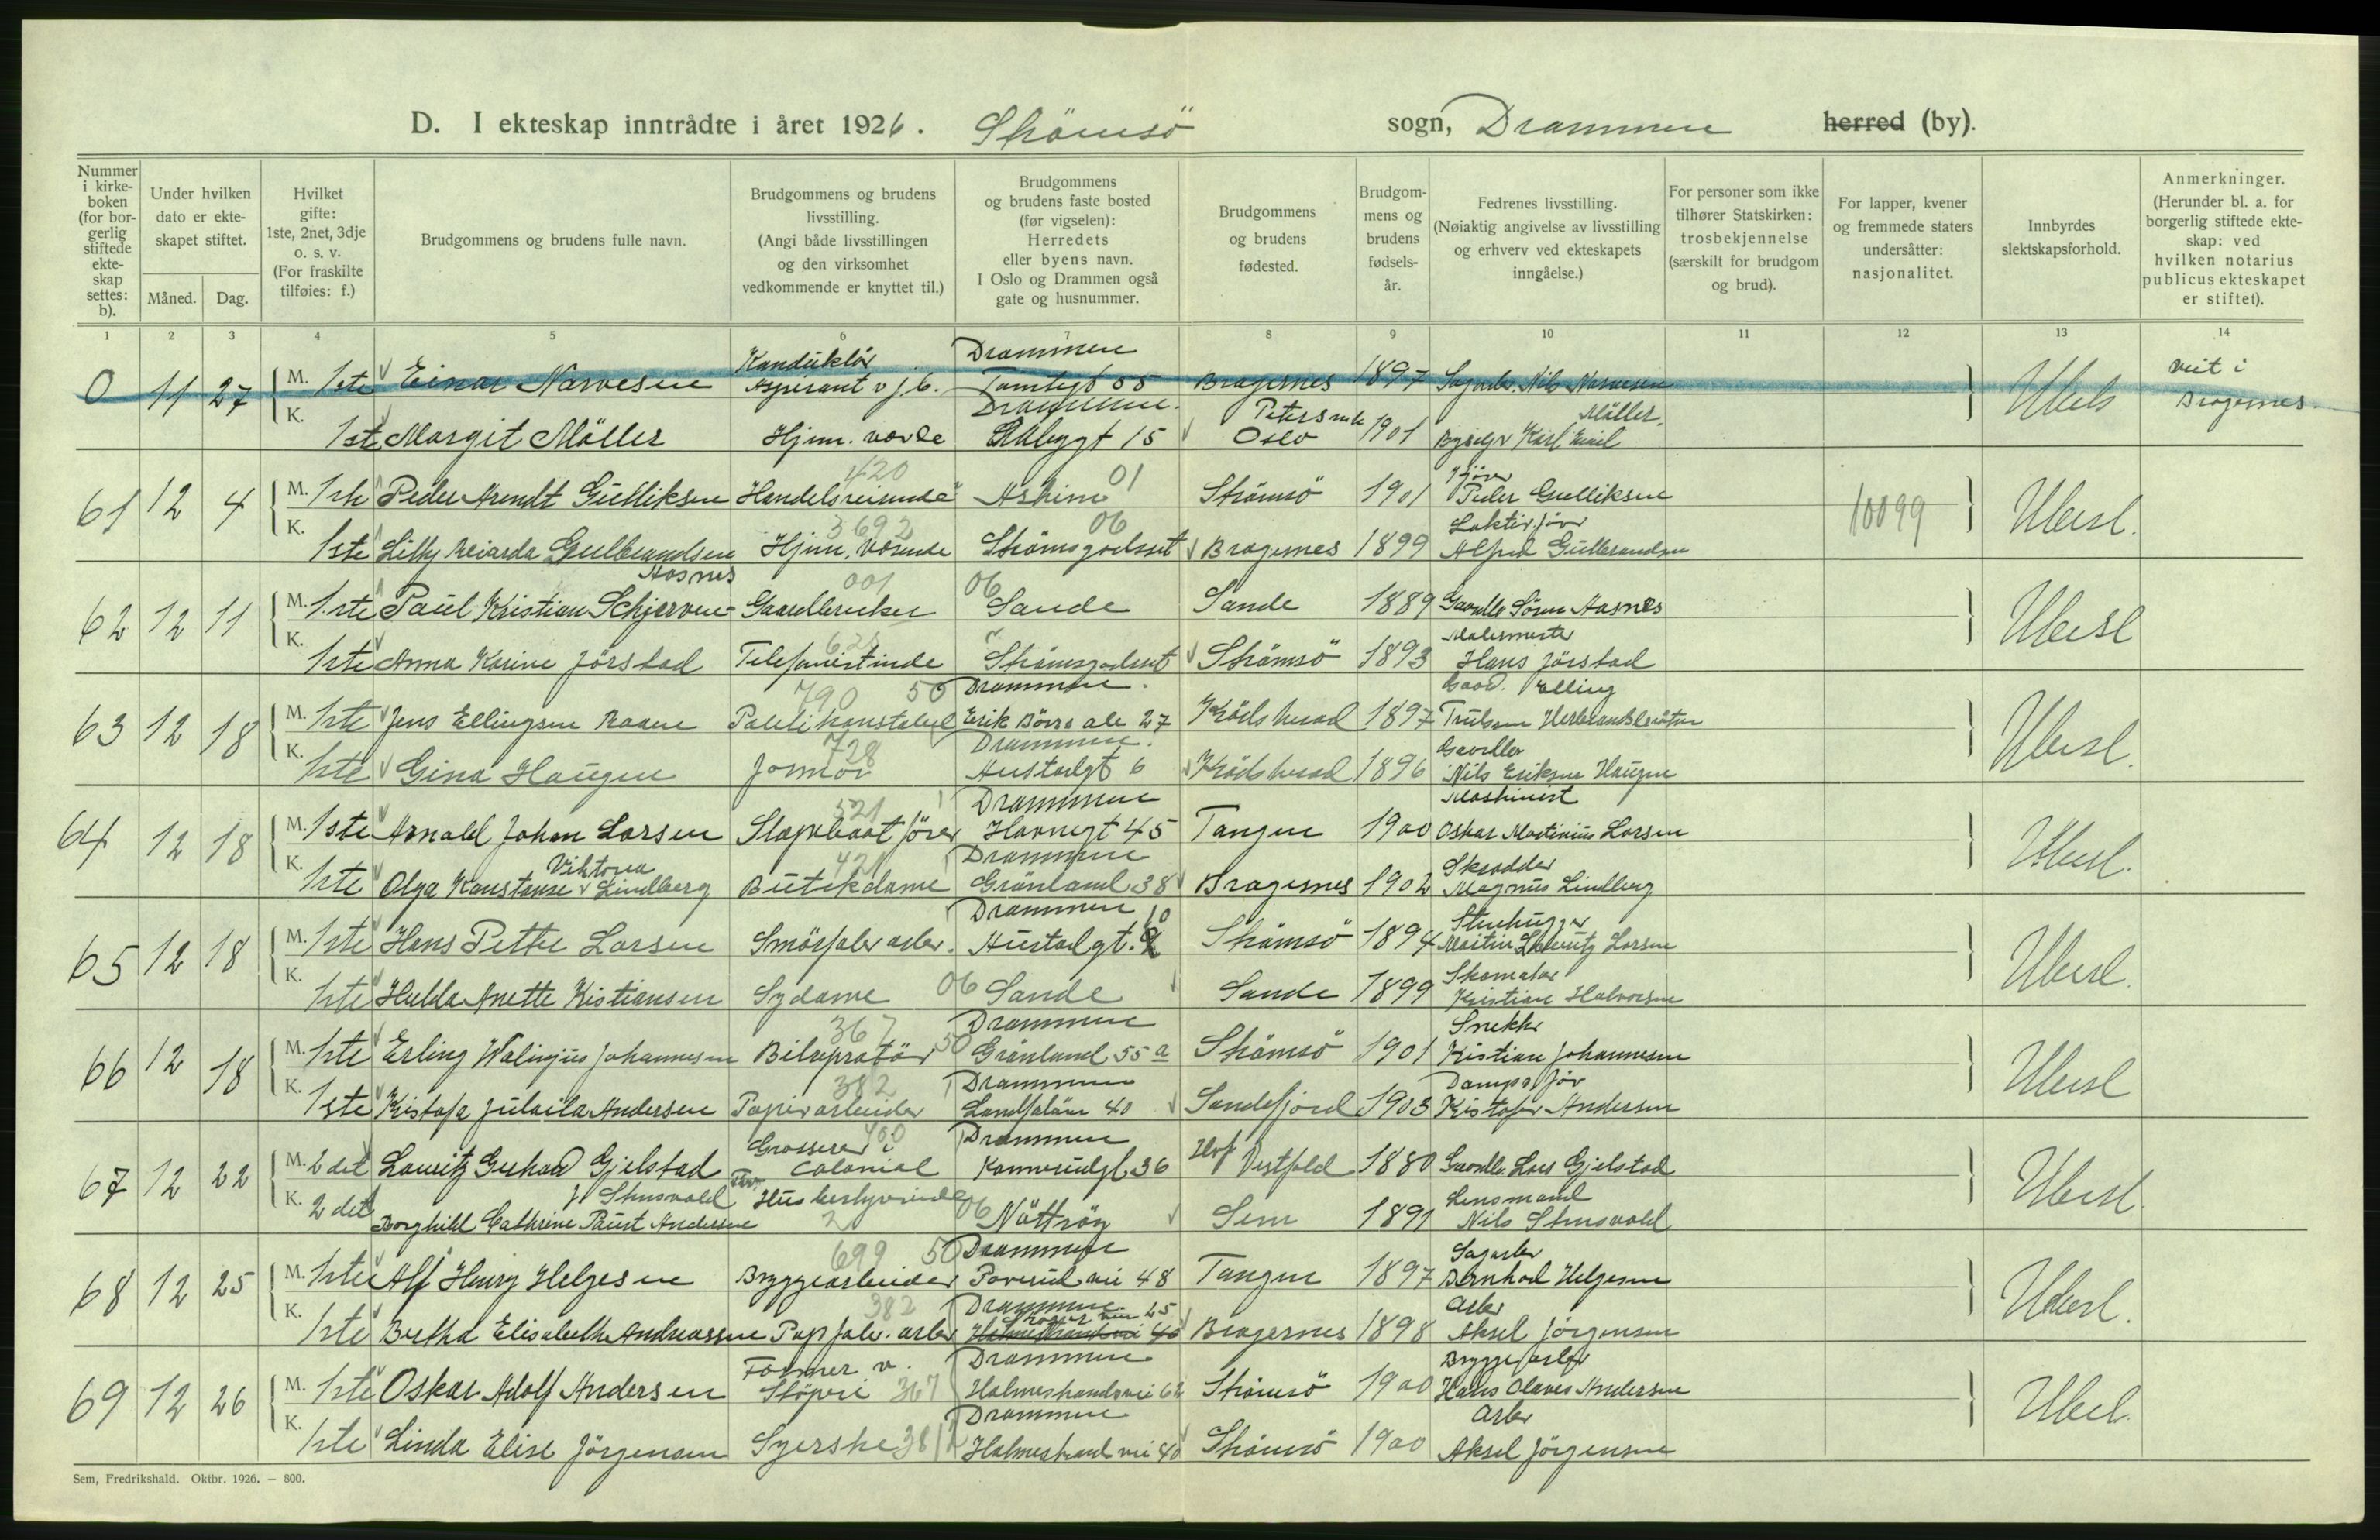 D. I ekteskap inntrådte i året 1926. Strömsö sogn, Drammen herred (by).
Nummer i kirkeboken (for borgerlig stiftede ekteskap settes: b).
Under hvilken dato er ekteskapet stiftet.
Måned. Dag.
Hvilket gifte: 1ste, 2net, 3dje o. s. v. (For fraskilte tilføies: f.)
Brudgommens og brudens fulle navn.
Brudgommens og brudens livsstilling. (Angi både livsstillingen og den virksomhet vedkommende er knyttet til.)
Brudgommens og brudens faste bosted (før vigselen): Herredets eller byens navn. I Oslo og Drammen også gate og husnummer.
Brudgommens og brudens fødested.
Brudgommens og brudens fødselsår.
Fedrenes livsstilling. (Nøiaktig angivelse av livsstilling og erhverv ved ekteskapets inngåelse.)
For personer som ikke tilhører Statskirken: trosbekjennelse (særskilt for brudgom og brud).
For lapper, kvener og fremmede staters undersåtter: nasjonalitet.
Innbyrdes slektskapsforhold.
Anmerkninger. (Herunder bl. a. for borgerlig stiftede ekteskap: ved hvilken notarius publicus ekteskapet er stiftet).
1 2 3 4 5 6 7 8 9 10 11 12 13 14
0 11 27 M. 1ste Einar Narvesen Konduktör Aspirant v j.b. Drammen Tomtegt 55 Bragernes 1897 Sagarb. Nils Narvesen Ubesl viet i Bragernes.
K. 1ste Margit Möller Hjem. Drammen. 15 Oslo 1901 Karl Emil Möller.
61 12 4 M. 1ste Peder Arendt Gulliksen 420 Handelsreisende Askim 01 Strömsö 1901 Peder Gulliksen 10099 Ubesl.
K. 1ste Lilly Gulbrandsen 3692 Hjem. værende 06 Strömsgodset Bragernes 1899 Alfred Gulbrandsen
62 12 11 M. 1ste Paul Kristian Schjerven Aasnes 001 Gaardbruker 06 Sande Sande 1889 Gaardb Sören Aasnes Ubesl
K. 1ste Anna Karine Jörstad Telefonistinde Strömsgodset Strömsö 1893 Malermester Hans Jörstad
63 12 18 M. 1ste Jens Ellingsen Raaen 790 50 Politikonstabel Drammen. Erik Börrs ale 27 Krödsherad 1897 Gaardb. Elling Trulsen Ubesl.
K. 1ste Gina Haugen 728 Jormor Drammen. Austadgt 6 Krödsherad 1896 Gaardbr Nils Eriksen Haugen
64 12 18 M. 1ste Arnold Johan Larsen 521 Slæpebaat förer Drammen Havnegt 45 Tangen 1900 Maskinist Oskar Martinius Larsen Ubesl.
K. 1ste Olga Konstanse Viktoria Lindberg 421 Butikdame Drammen Grönland 38 Bragernes 1902 Skrædder Magnus Lindberg
65 12 18 M. 1ste Hans Petter Larsen Smörfabr arbr. Drammen Austadgt. 10 Strömsö 1894 Stenhugger Martin Lauritz Larsen Ubesl.
K. 1ste Hulda Anette Kristiansen Sydame 06 Sande Sande 1899 Skomaker Kristian Halvorsen
66 12 18 M. 1ste Erling Johannesen 367 Bilreparatör 50 Drammen Grönland 55 a Strömsö 1901 Snekker Kristian Johannesen Ubesl
K. 1ste Kristofa Andersen 382 Papirarbeider Drammen Landfalöen 40 Sandefjord 1903 Kristofer Andersen
67 12 22 M. 2det Lauritz Gerhard Gjelstad 400 Grosserer i Colonial Drammen Konnerudgt 36 Hof Vestfold 1880 Gaardbr. Lars Gjelstad Ubesl.
K. 2det Borghild Cathrine Paust Andersen f Husbestyrerinde 2 06 Nötteröy Sem 1891 Lensmand Nils
68 12 25 M. 1ste Alf Henry Helgesen 699 50 Bryggearbeider Drammen 48 Tangen 1897 Sagarbr Bernhard Helgesen Ubesl.
K. 1ste Bretha Elisabeth Andreassen 382 Papfabr. arbr Drammen. 25 Holmestrandsvei 40 Bragernes 1898 Arbr Aksel Jörgensen
69 12 26 M. 1ste Oskar Adolf Andersen Former v. Stöperi 367 Drammen Holmestrandsvei 62 Strömsö 1900 Bryggearbr Hans Olaves Andersen Ubesl.
K. 1ste Linda Elise Jörgensen Syerske 381 Drammen Holmestrands vei 40 Strömsö 1900 Arbr Aksel Jörgensen
Sem, Fredrikshald. Oktbr. 1926. — 800.